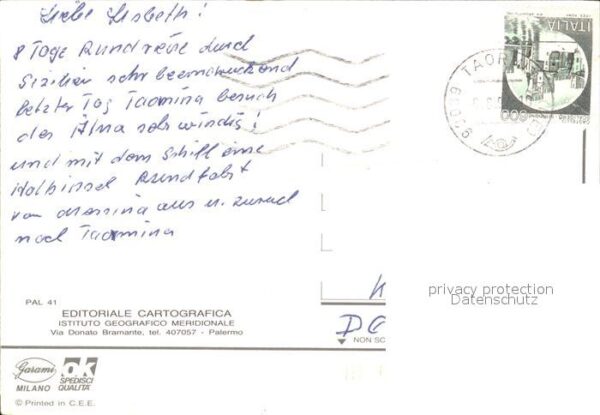 Liebe Lisbeth!
8 Tage Rundreise durch
Sizilien sehr beeindruckend
letzter Tag Taomina besuch
des Ätna sehr windig!
und mit dem Schiff eine
Halbinsel Rundfahrt
von Messina aus u. zurück
nach Taomina
PAL 41
EDITORIALE CARTOGRAFICA
ISTITUTO GEOGRAFICO MERIDIONALE
Via Donato Bramante, tel. 407057 - Palermo
Garami
MILANO
OK
SPEDISCI
QUALITA'
© Printed in C.E.E.
ITALIA
600
98039 TAOR
NON SC
privacy protection
Datenschutz